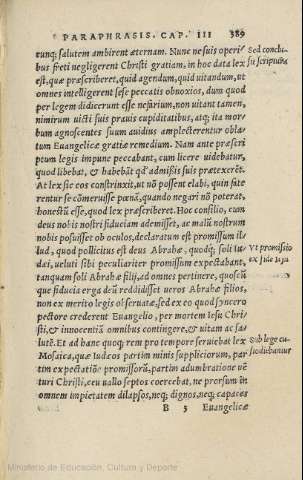 PARAPHRASIS. CAP. III 389
tunq; salutem ambirent æternam. Nunc ne suis operi
bus freti negligerent Christi gratiam, in hoc data lex
est, quæ præscriberet, quid agendum, quid uitandum, ut
omnes intelligerent sese peccatis obnoxios, dum quod
per legem didicerunt esse nefarium, non uitant tamen,
nimirum uicti suis prauis cupiditatibus, atq; ita mor
bum agnoscentes suum auidius amplecterentur obla
tum Euangelicæ gratiæ remedium. Nam ante præscri
ptum legis impune peccabant, cum licere uidebatur,
quod libebat, & habebāt qđ admissis suis prætexerēt.
At lex sic eos constrinxit, ut nō possent elabi, quin fate
rentur se cōmeruisse pœnā, quando negari nō poterat,
honestū esse, quod lex præscriberet. Hoc consilio, cum
deus nobis nostri fiduciam ademisset, ac malū nostrum
nobis posuisset ob oculos, declaratum est promissum il
lud, quod pollicitus est deus Abrahæ, quodq; soli Iu
dæi, ueluti sibi peculiariter promissum expectabant,
tanquam soli Abrahæ filij, ad omnes pertinere, quoscū
que fiducia erga deū reddidisset ueros Abrahæ filios,
non ex merito legis obseruatæ, sed ex eo quod syncero
pectore crederent Euangelio, per mortem Iesu Chri/
sti, & innocentiā omnibus contingere, & uitam ac sa/
lutē. Et ad hanc quoq; rem pro tempore seruiebat lex
Mosaica, quæ Iudæos partim minis suppliciorum, par
tim expectatiōe promissorū, partim adumbratione uē
turi Christi, ceu uallo septos coercebat, ne prorsum in
omnem impietatem dilapsos, neq; dignos, neq; capaces
B 3 Euangelicæ
Sed conclu
sit scriptura
Vt promissio
ex fide Iesu
Sub lege cu/
stodiebamur
Ministerio de Educación, Cultura y Deporte